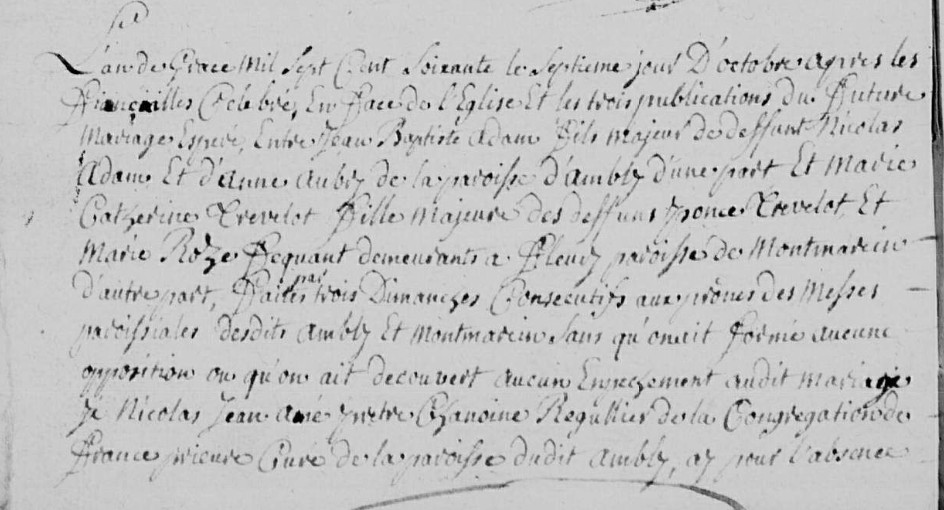 L'an de Grace Mil Sept Cent Soixante le Septieme jour D'octobre apres les
Fiançailles Celebré, En Face de l'Eglise Et les trois publications du Future
Mariage Entre Jean Baptiste Adam Fils majeur de deffunt Nicolas
Adam Et d'Anne Aubry de la paroisse d'ambly d'une part Et Marie
Catherine Trevelot Fille Majeure des deffuns ponce Trevelot Et
Marie Roze Fequant demeurants a Fleury paroisse de Montmarein
d'autre part, Faites par trois Dimanches Consecutifs aux prônes des Messes
paroissiales desdits ambly Et Montmarein Sans qu'on ait Formé aucune
opposition ou qu'on ait decouvert aucun Empechement audit mariage
Je Nicolas Jean pretre Chanoine Regullier de la Congregation de
France prieure Curé de la paroisse dudit Ambly, ay pour l'absence